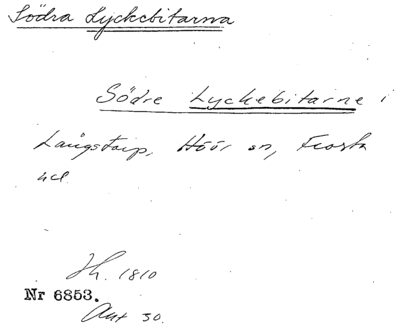 Södra Lyckebitarna
Södre Lyckebitarne i
Långstorp, Höör sn, Frosta
hd
Jh. 1810
Nr 6853.
Akt 30.